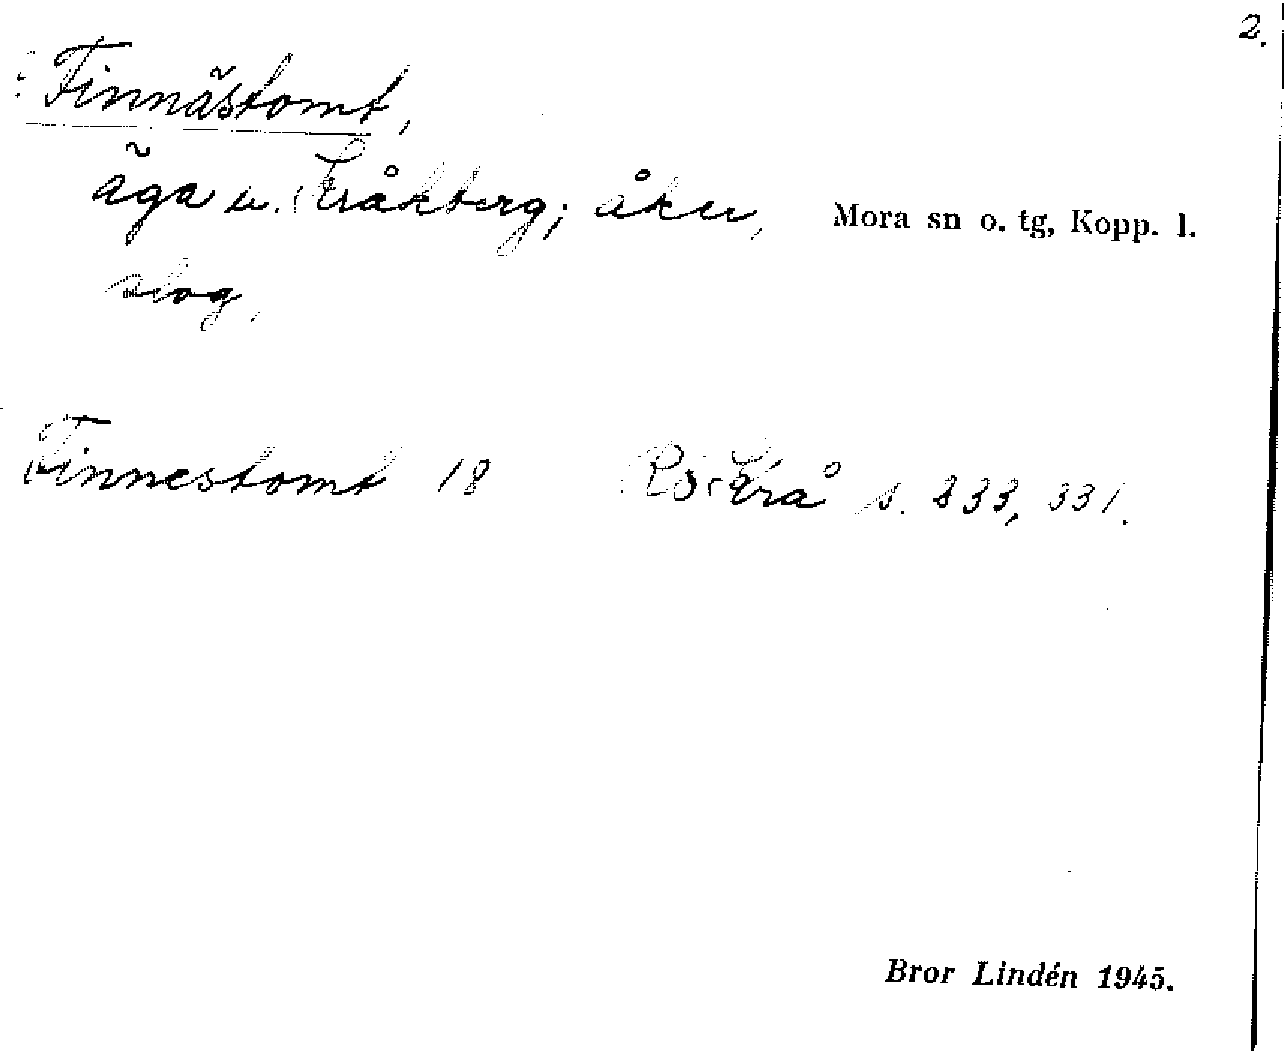 2.
Finnästomt,
äga u. Kråkberg; åker, Mora sn o. tg, Kopp. l.
slog,
Finnestomt 18 Rö Krå s. 833, 331.
Bror Lindén 1945.